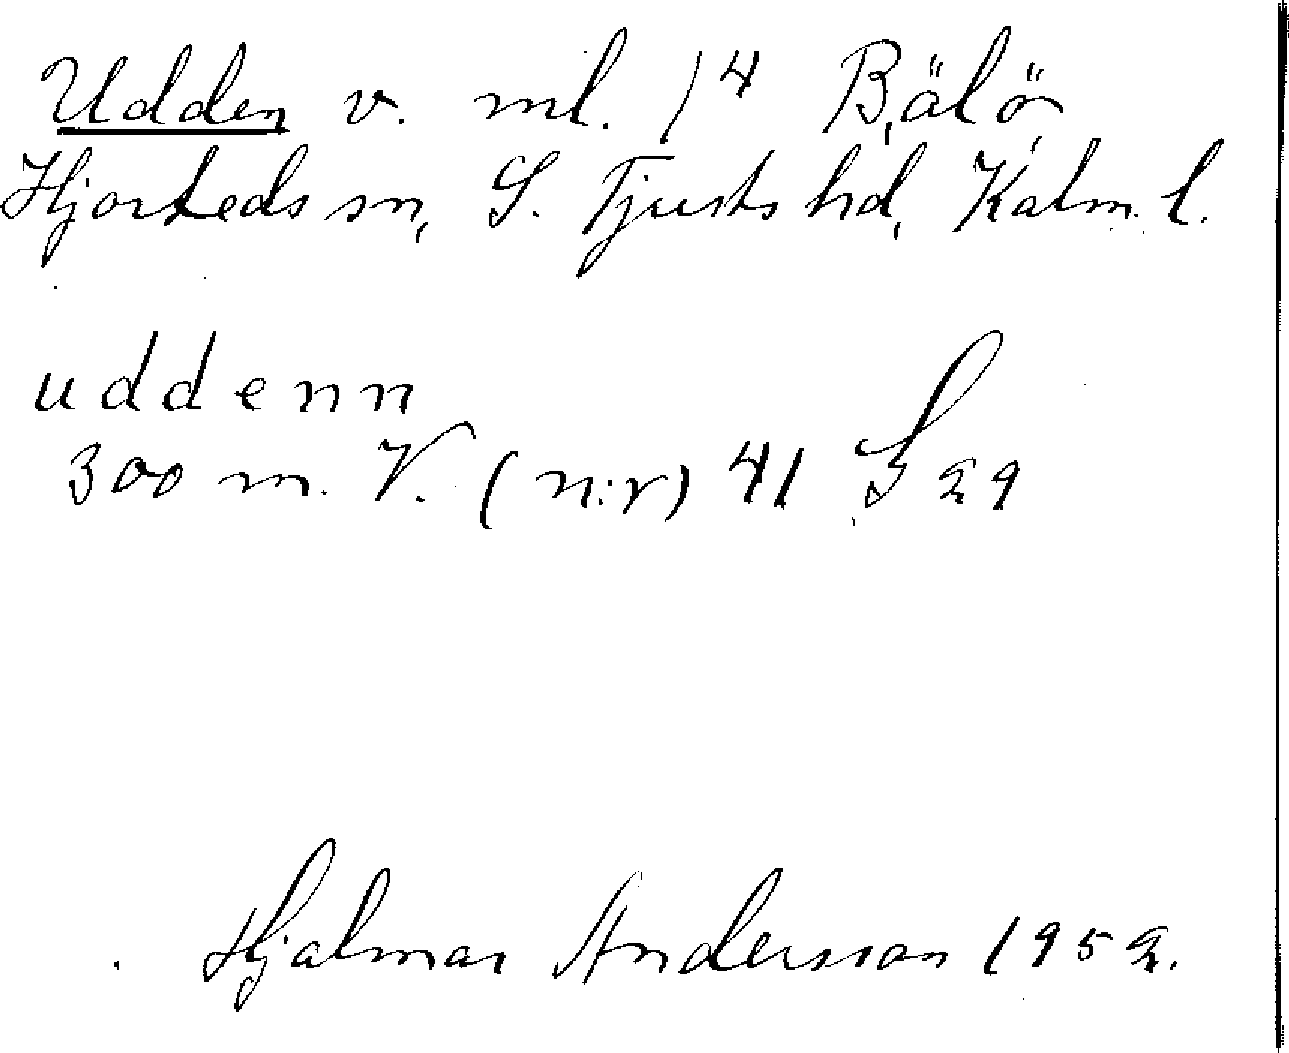 Udden v. ml. 14 Bälö,
Hjorteds sn, S. Tjusts hd, Kalm. l.
uddenn
300 m. V. (n:r) 41 S 29
Hjalmar Andersson 1952.